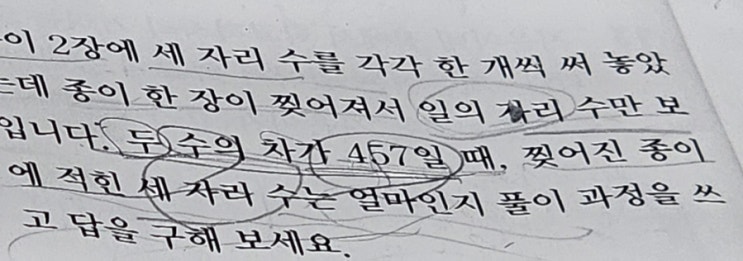 이 2장에 세 자리 수를 각각 한 개씩 써 놓았
데 종이 한 장이 찢어져서 일의 자리 수만 보
입니다. 두 수의 차가 457일 때, 찢어진 종이
에 적힌 세 자리 수는 얼마인지 풀이 과정을 쓰
고 답을 구해 보세요.